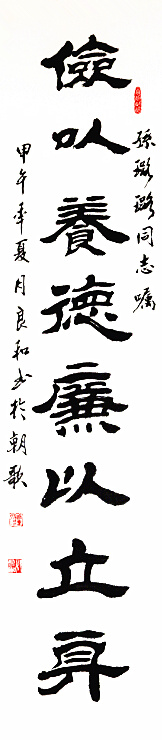 孫璐璐同志囑
儉以養德廉以立身
甲午年夏月良和书於朝歌